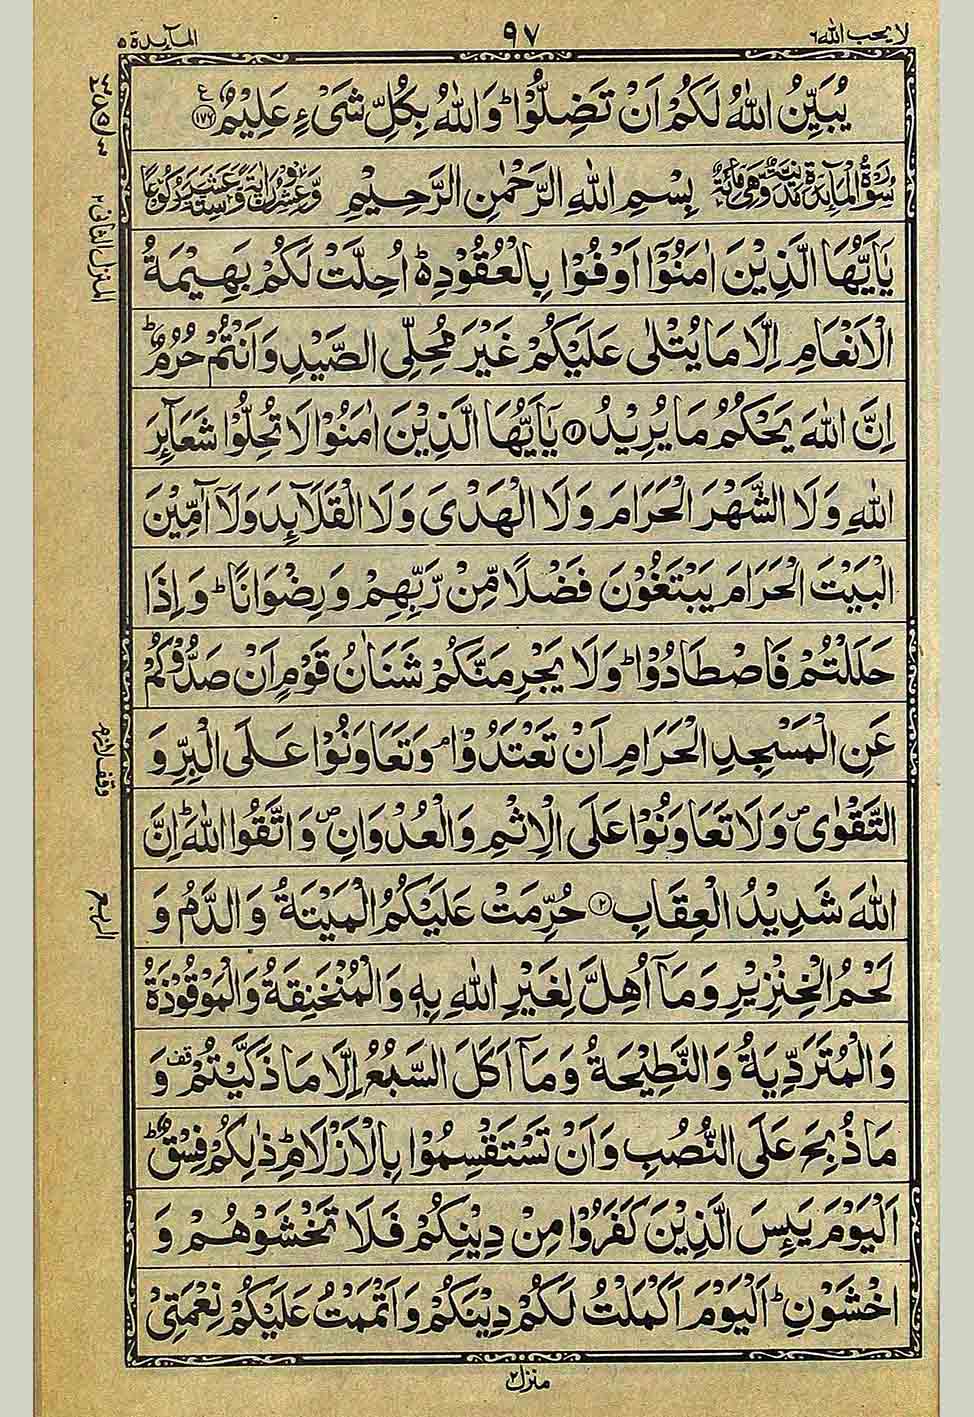 لا یحب الله ٦
٩٧
المآىِٕدة ٥
یُبَیِّنُ اللّٰهُ لَكُمْ اَنْ تَضِلُّوْا ؕ وَ اللّٰهُ بِكُلِّ شَیْءٍ عَلِیْمٌ ﴿۱۷۶﴾ ع
سُوْرَةُ الْمَآىِٕدَةِ مَدَنِیَّةٌ وَّهِیَ مِائَةٌ بِسْمِ اللّٰهِ الرَّحْمٰنِ الرَّحِیْمِ وَّعِشْرُوْنَ اٰیَةً وَّ سِتَّةَ عَشَرَ رُكُوْعًا
یٰۤاَیُّهَا الَّذِیْنَ اٰمَنُوْۤا اَوْفُوْا بِالْعُقُوْدِ ؕ۬ اُحِلَّتْ لَكُمْ بَهِیْمَةُ
الْاَنْعَامِ اِلَّا مَا یُتْلٰی عَلَیْكُمْ غَیْرَ مُحِلِّی الصَّیْدِ وَ اَنْتُمْ حُرُمٌ ؕ
اِنَّ اللّٰهَ یَحْكُمُ مَا یُرِیْدُ ﴿۱﴾ یٰۤاَیُّهَا الَّذِیْنَ اٰمَنُوْا لَا تُحِلُّوْا شَعَآىِٕرَ
اللّٰهِ وَ لَا الشَّهْرَ الْحَرَامَ وَ لَا الْهَدْیَ وَ لَا الْقَلَآىِٕدَ وَ لَاۤ آٰمِّیْنَ
الْبَیْتَ الْحَرَامَ یَبْتَغُوْنَ فَضْلًا مِّنْ رَّبِّهِمْ وَ رِضْوَانًا ؕ وَ اِذَا
حَلَلْتُمْ فَاصْطَادُوْا ؕ وَ لَا یَجْرِمَنَّكُمْ شَنَاٰنُ قَوْمٍ اَنْ صَدُّوْكُمْ
عَنِ الْمَسْجِدِ الْحَرَامِ اَنْ تَعْتَدُوْا ۘ وَ تَعَاوَنُوْا عَلَی الْبِرِّ وَ
التَّقْوٰی ۪ وَ لَا تَعَاوَنُوْا عَلَی الْاِثْمِ وَ الْعُدْوَانِ ۪ وَ اتَّقُوا اللّٰهَ ؕ اِنَّ
اللّٰهَ شَدِیْدُ الْعِقَابِ ﴿۲﴾ حُرِّمَتْ عَلَیْكُمُ الْمَیْتَةُ وَ الدَّمُ وَ
لَحْمُ الْخِنْزِیْرِ وَ مَاۤ اُهِلَّ لِغَیْرِ اللّٰهِ بِهٖ وَ الْمُنْخَنِقَةُ وَ الْمَوْقُوْذَةُ
وَ الْمُتَرَدِّیَةُ وَ النَّطِیْحَةُ وَ مَاۤ اَكَلَ السَّبُعُ اِلَّا مَا ذَكَّیْتُمْ ۟قف وَ
مَا ذُبِحَ عَلَی النُّصُبِ وَ اَنْ تَسْتَقْسِمُوْا بِالْاَزْلَامِ ؕ ذٰلِكُمْ فِسْقٌ ؕ
اَلْیَوْمَ یَىِٕسَ الَّذِیْنَ كَفَرُوْا مِنْ دِیْنِكُمْ فَلَا تَخْشَوْهُمْ وَ
اخْشَوْنِ ؕ اَلْیَوْمَ اَكْمَلْتُ لَكُمْ دِیْنَكُمْ وَ اَتْمَمْتُ عَلَیْكُمْ نِعْمَتِیْ
المنزل الثانی ۲
وقف لازم
الربع
منزل ۲